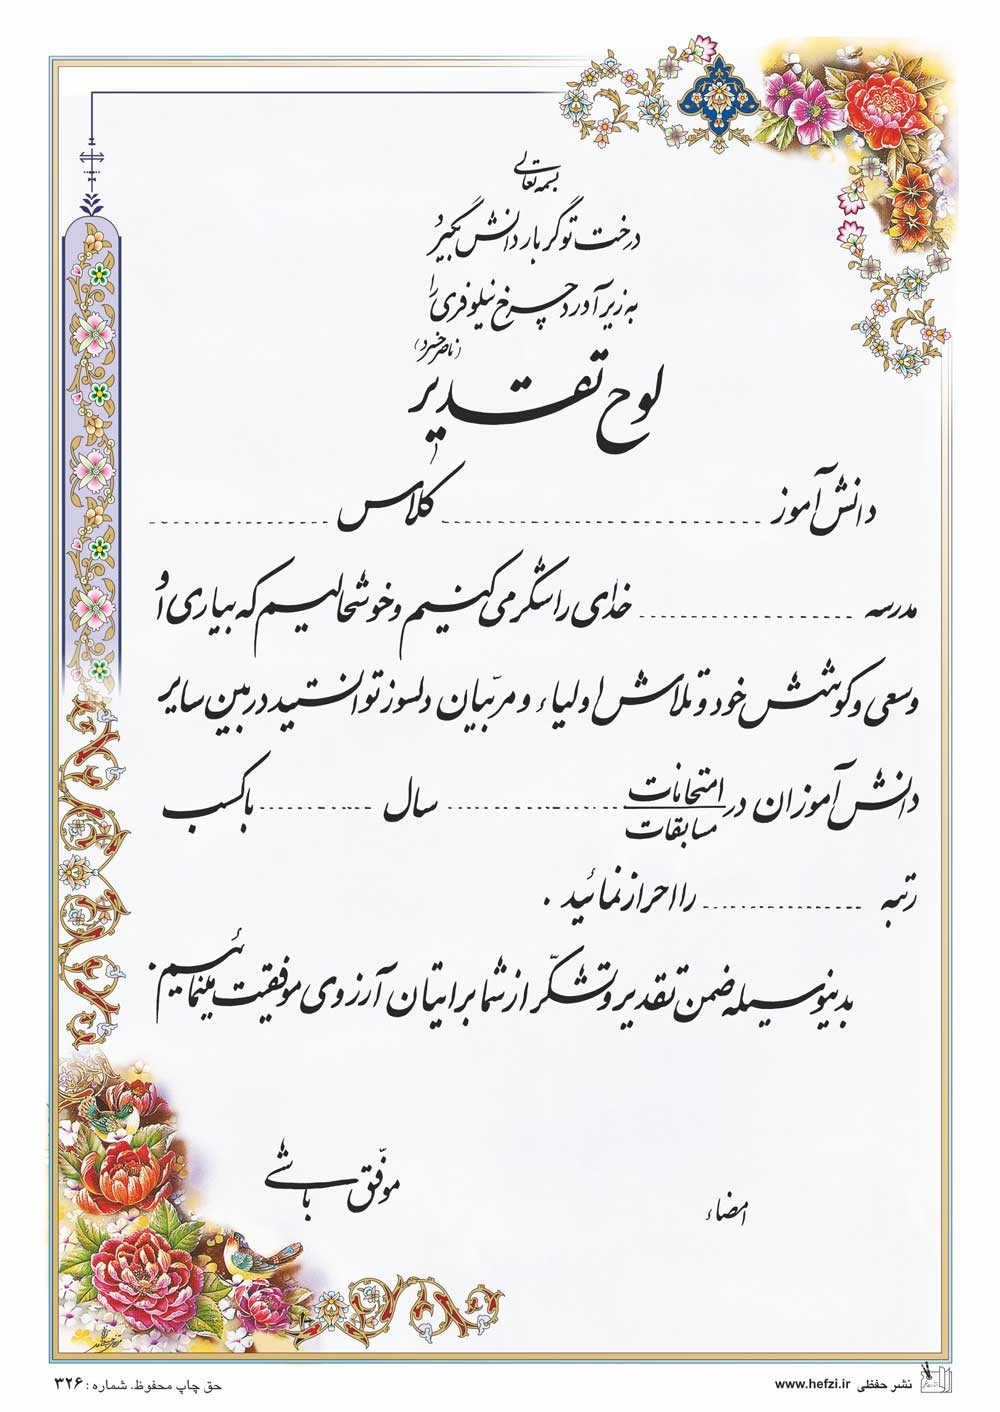 بسمه تعالی
درخت تو گر بار دانش بگیرد
به زیر آورد چرخ نیلوفری را
(ناصر خسرو)
لوح تقدیر
دانش آموز ............ کلاس ............
مدرسه ............ خدای را شکر می کنیم و خوشحالیم که بیاری او
و سعی و کوشش خود و تلاش اولیاء و مربّیان دلسوز توانستید در بین سایر
دانش آموزان در امتحانات ............ سال ............ با کسب
مسابقات
رتبه ............ را احراز نمائید .
بدینوسیله ضمن تقدیر و تشکّر از شما برایتان آرزوی موفقیت مینمائیم .
موفّق باشی
امضاء
نشر حفظی www.hefzi.ir
حق چاپ محفوظ. شماره : ۳۲۶